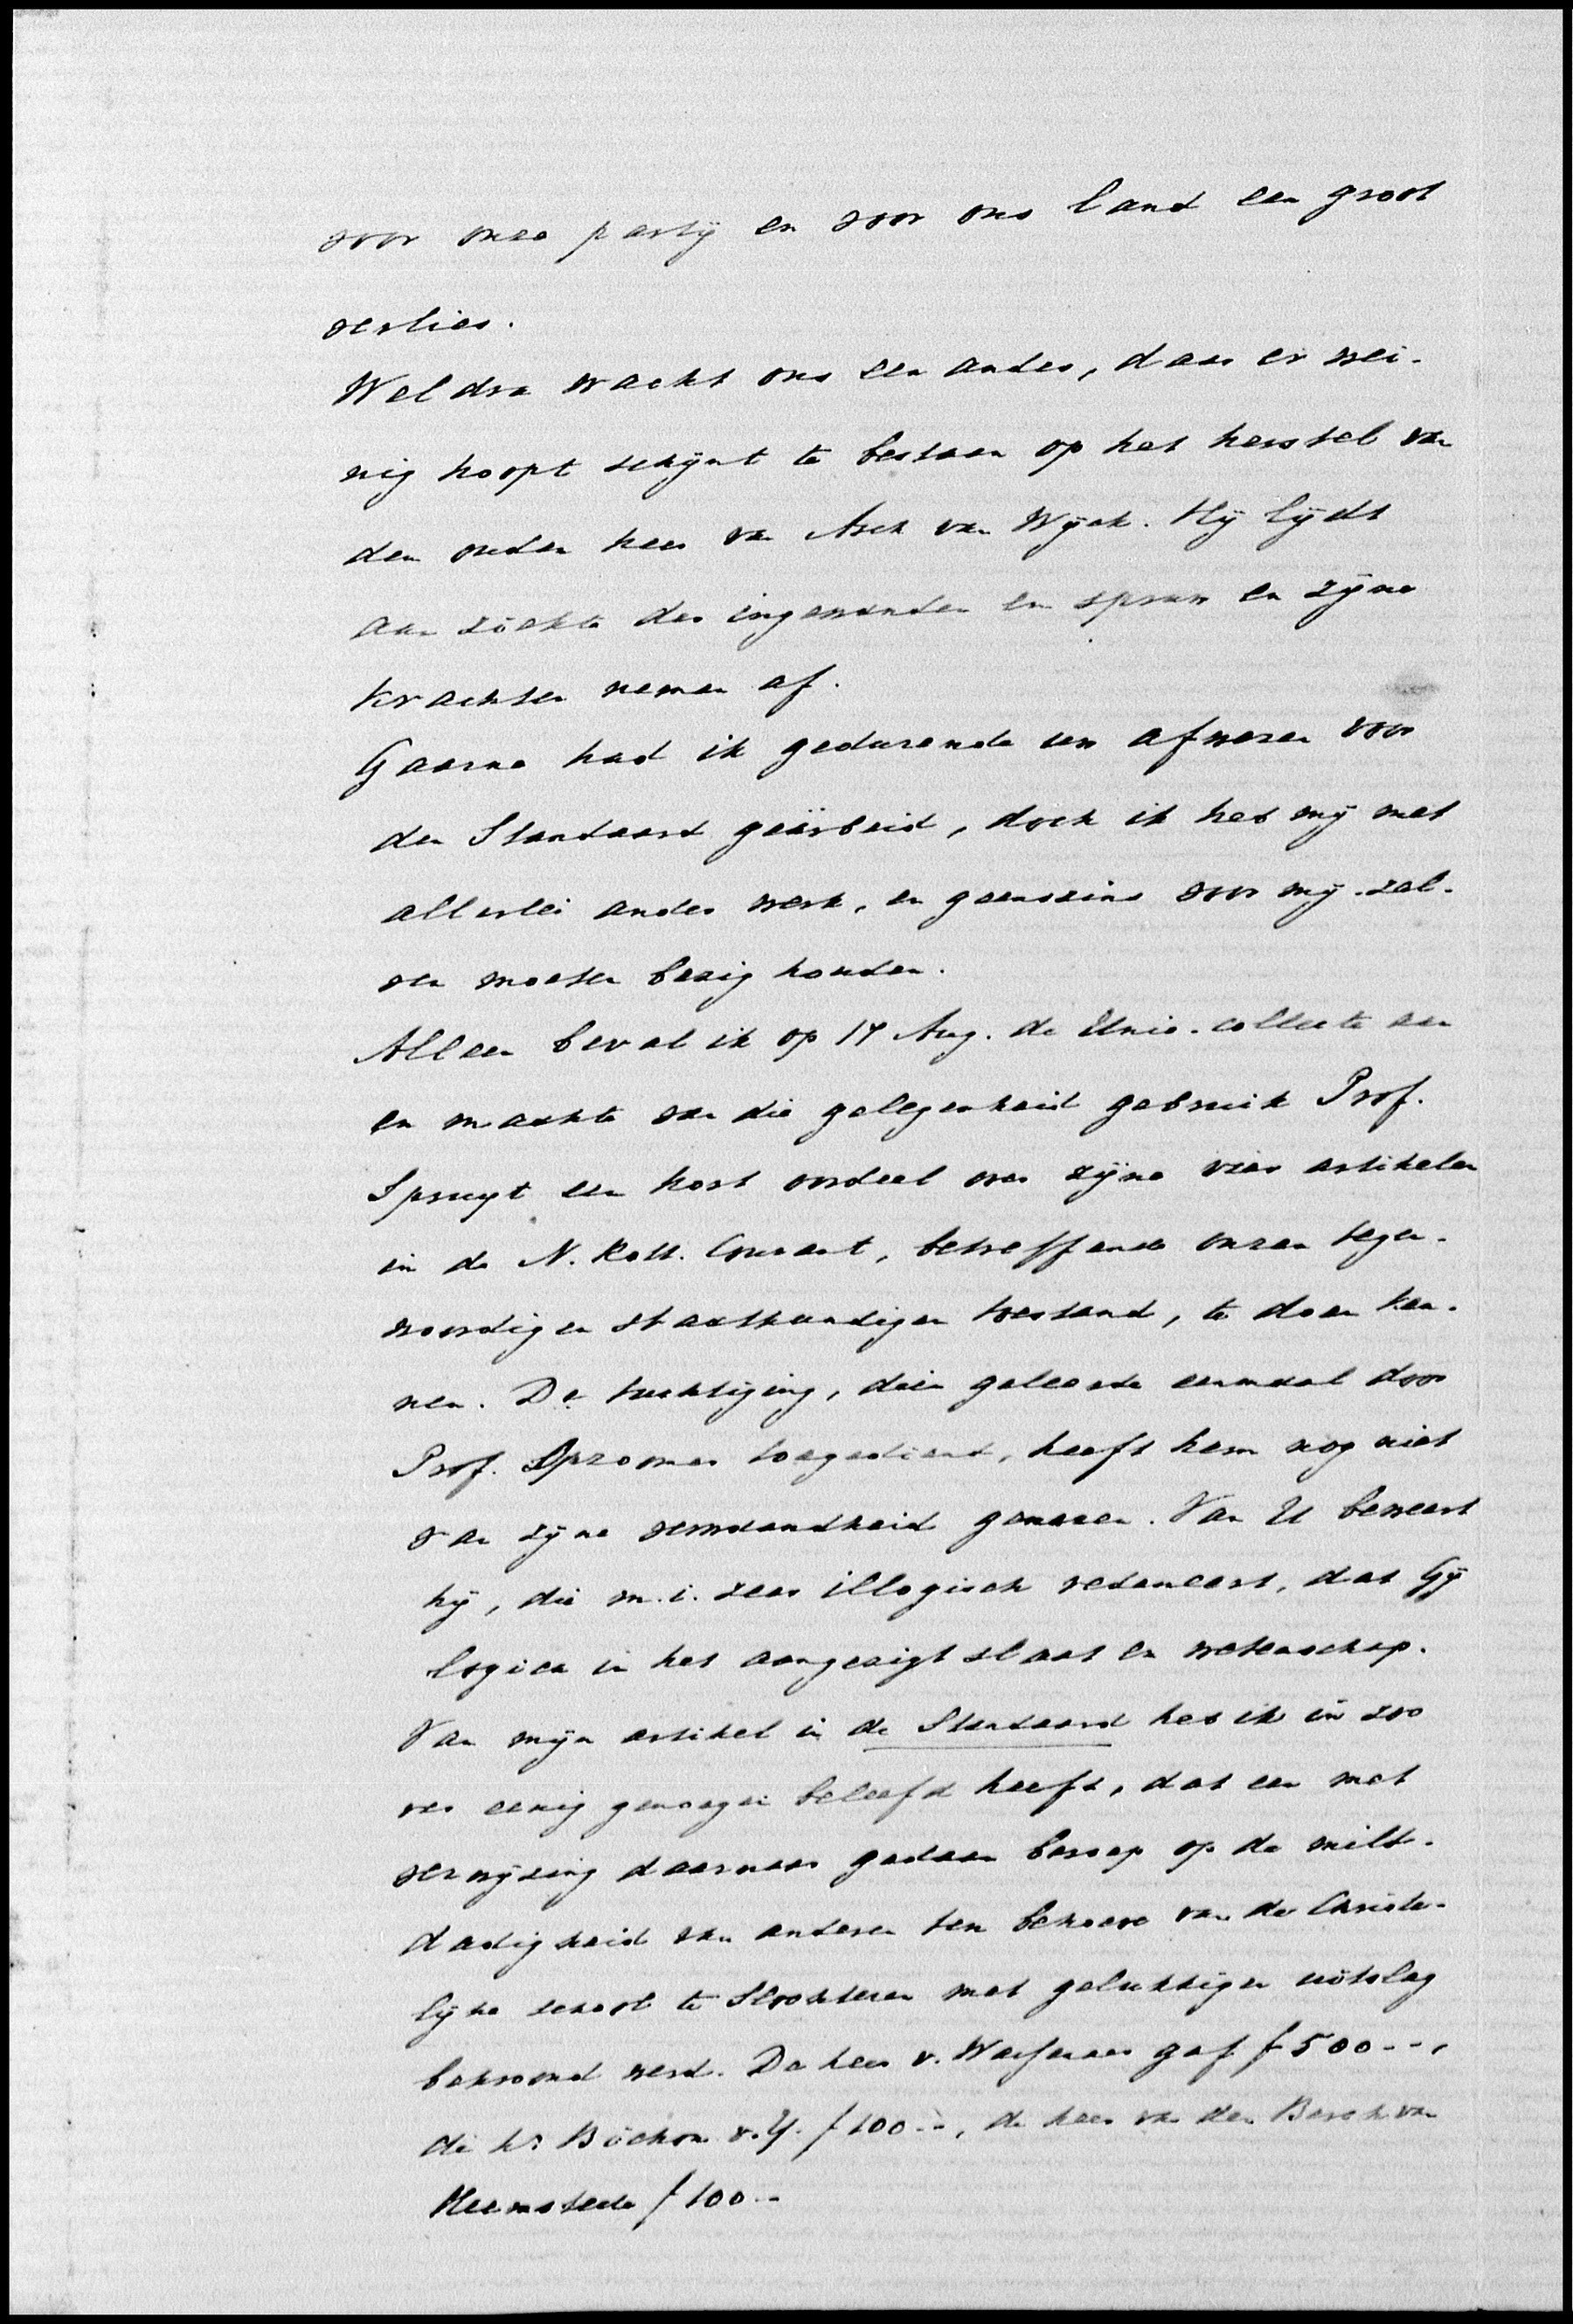 voor onze partij en voor ons land een groot
verlies.
Weldra wacht ons een ander, daar er wei-
nig hoopt schijnt te bestaan op het herstel van
den ouden heer van Asch van Wijck. Hij lijdt
aan ziekte der ingewanden en spruw en zijne
krachten nemen af.
Gaarne had ik gedurende uw afwezen voor
den Standaard gearbeid, doch ik heb mij met
allerlei ander werk, en geenszins voor mij zel-
ven moeten bezig houden.
Alleen beval ik op 14 Aug. de Unie-collecte aan
en maakte van die gelegenheid gebruik Prof.
Spruyt een kort oordeel over zijne vier artikelen
in de N. Rott. Courant, betreffende onzen tegen-
woordigen staatkundigen toestand, te doen ken-
nen. De tuchtiging, dien geleerde eenmaal door
Prof. Opzoomer toegediend, heeft hem nog niet
van zijne verwaandheid genezen. Van U beweert
hij, die m.i. zeer illogisch redeneert, dat Gij
logica in het aangezigt slaat en wetenschap.
Van mijn artikel in de Standaard heb ik in zoo
ver eenig genoegen beleefd heeft, dat een met
verwijzing daarnaar gedaan beroep op de mild-
dadigheid van anderen ten behoeve van de Christe-
lijke school te Slochteren met gelukkigen uitslag
bekroond werd. De heer v. Wassenaer gaf f 500.--,
de hr Büchon v. Y. f 100.--, de heer van den Bosch van
Heemstede f 100.--